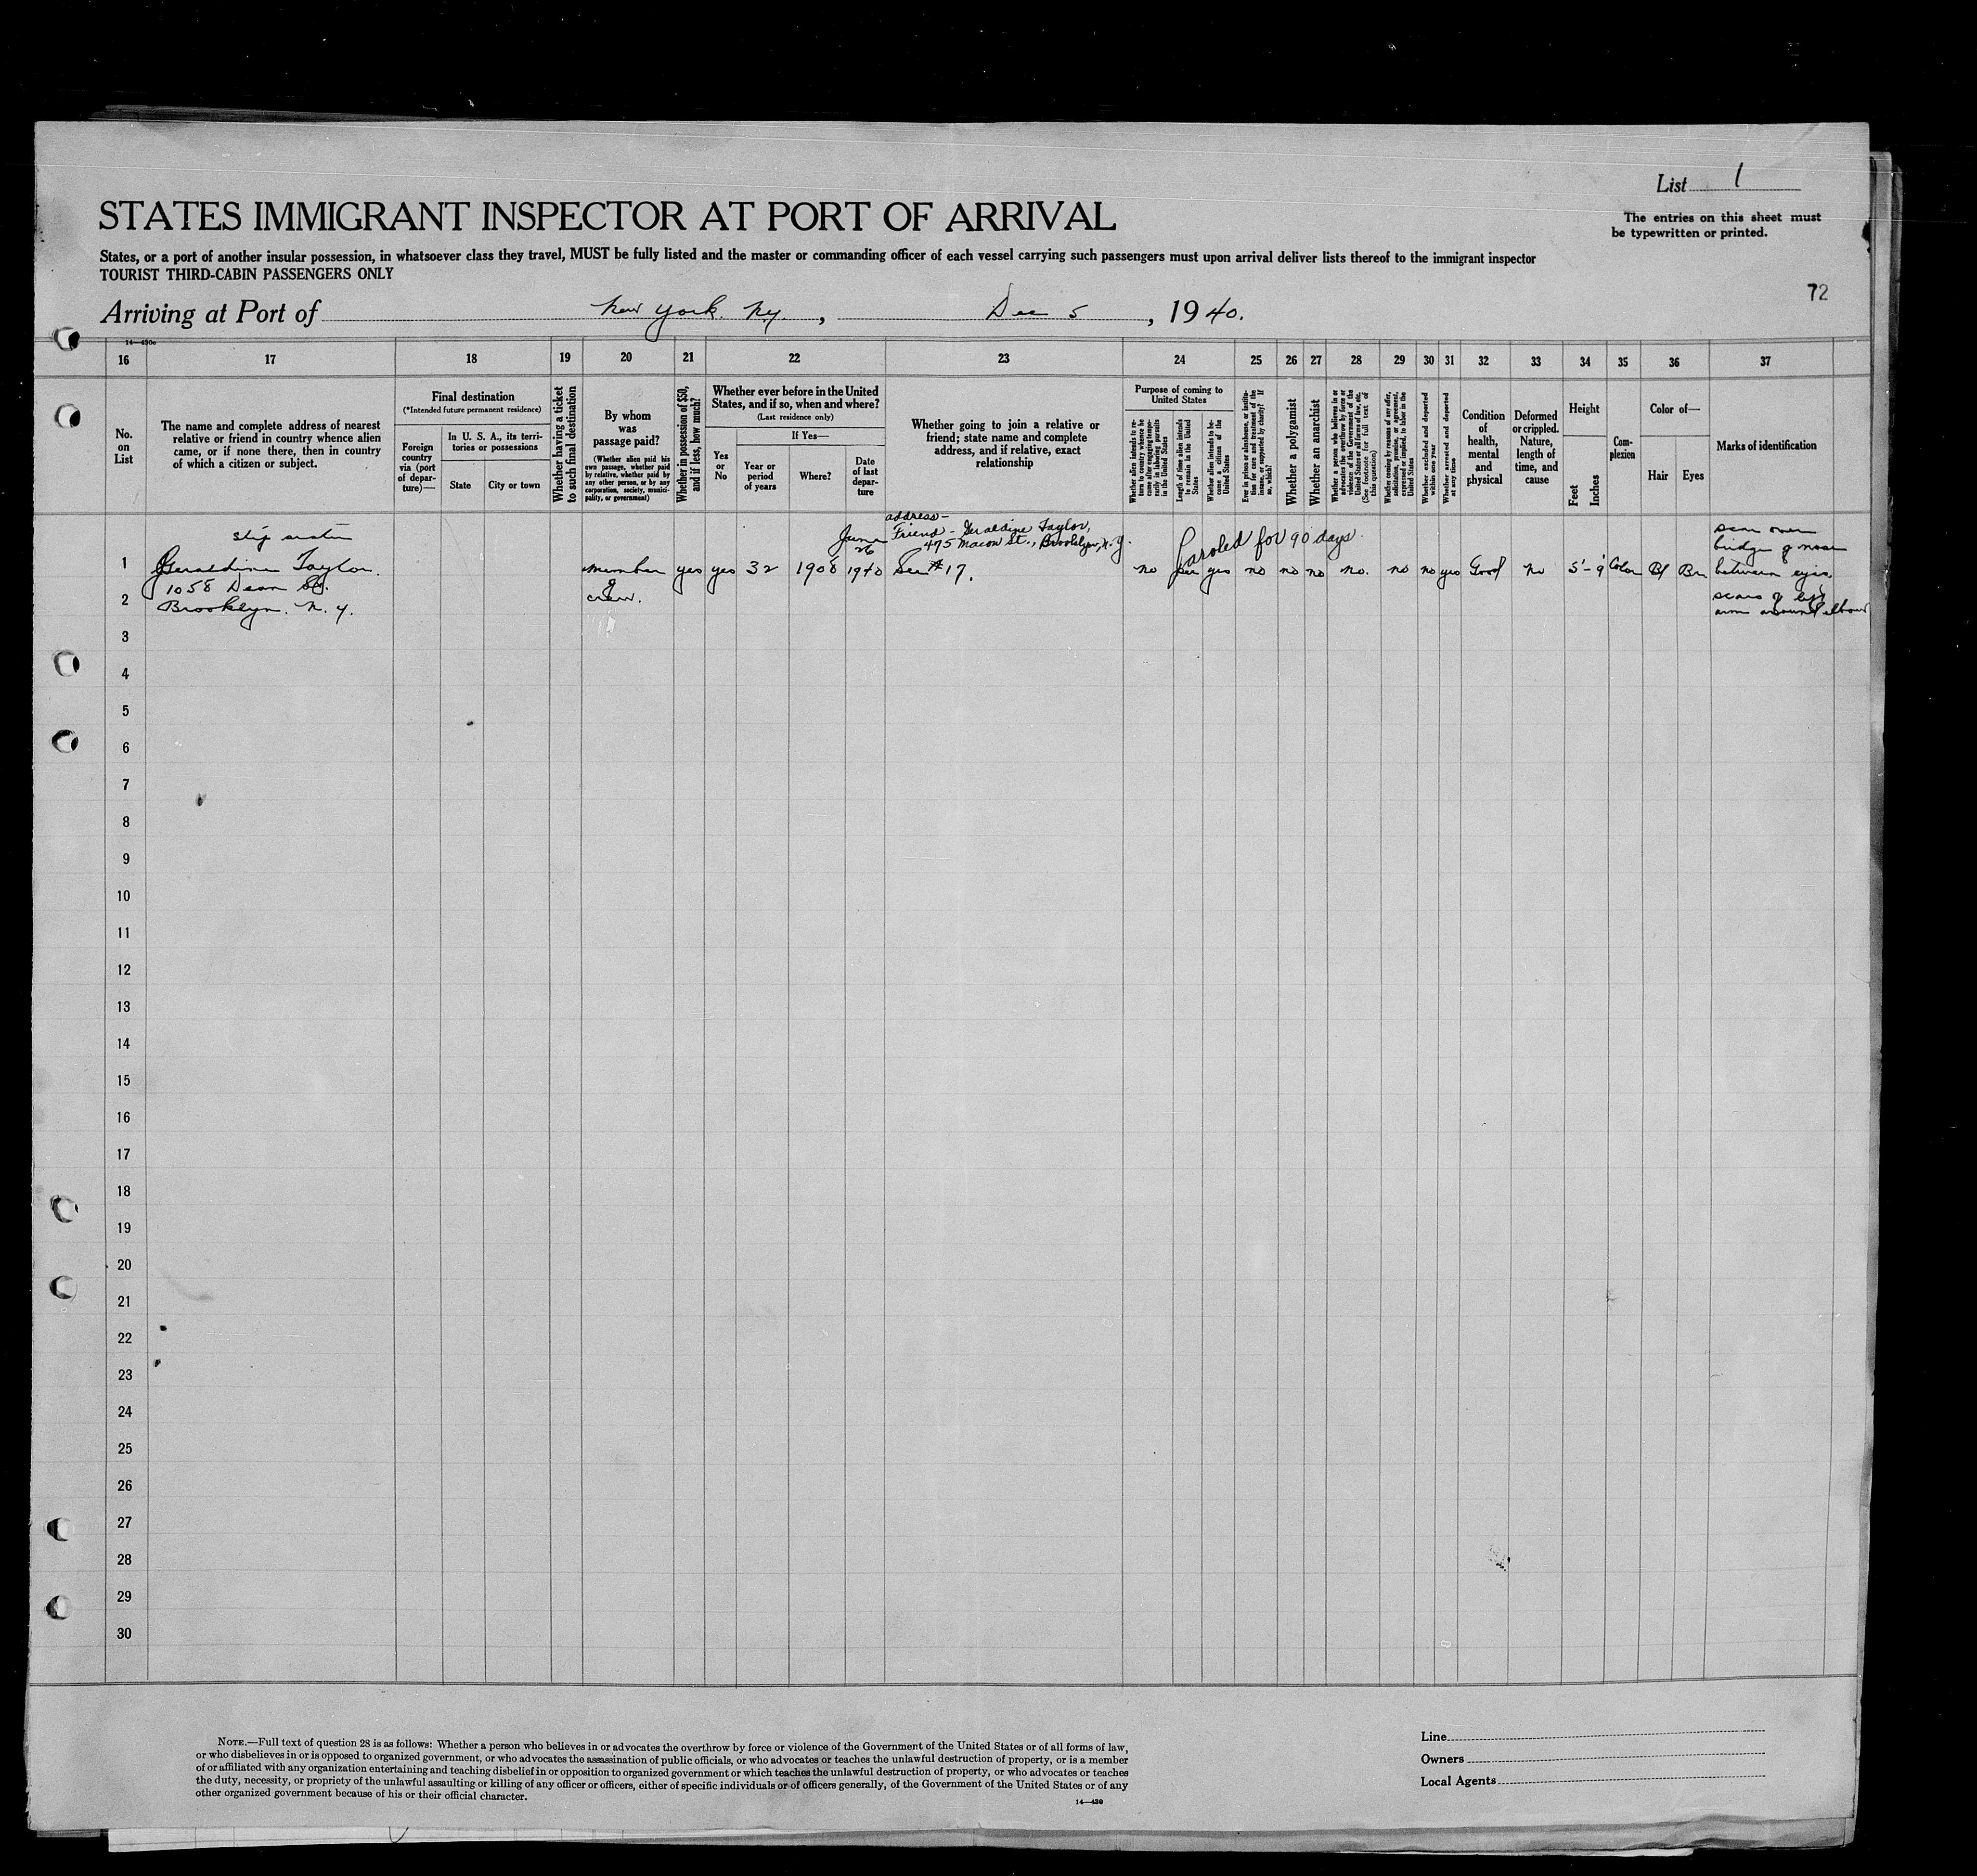 List 1
STATES IMMIGRANT INSPECTOR AT PORT OF ARRIVAL
The entries on this sheet must
be typewritten or printed.
States, or a port of another insular possession, in whatsoever class they travel, MUST be fully listed and the master or commanding officer of each vessel carrying such passengers must upon arrival deliver lists thereof to the immigrant inspector
TOURIST THIRD-CABIN PASSENGERS ONLY
72
Arriving at Port of New York. N.Y. , Dec 5 , 1940.
14—430c
16 17 18 19 20 21 22 23 24 25 26 27 28 29 30 31 32 33 34 35 36 37
No.
on
List
The name and complete address of nearest
relative or friend in country whence alien
came, or if none there, then in country
of which a citizen or subject.
Final destination
(*Intended future permanent residence)
Foreign
country
via (port
of depar-
ture)—
In U. S. A., its terri-
tories or possessions
State
City or town
Whether having a ticket
to such final destination
By whom
was
passage paid?
(Whether alien paid his
own passage, whether paid
by relative, whether paid by
any other person, or by any
corporation, society, munici-
pality, or government)
Whether in possession of $50,
and if less, how much?
Whether ever before in the United
States, and if so, when and where?
(Last residence only)
If Yes—
Yes
or
No
Year or
period
of years
Where?
Date
of last
depar-
ture
Whether going to join a relative or
friend; state name and complete
address, and if relative, exact
relationship
Purpose of coming to
United States
Whether alien intends to re-
turn to country whence he
came after engaging tempo-
rarily in laboring pursuits
in the United States
Length of time alien intends
to remain in the United
States
Whether alien intends to be-
come a citizen of the
United States
Ever in prison or almshouse, or institu-
tion for care and treatment of the
insane, or supported by charity? If
so, which?
Whether a polygamist
Whether an anarchist
Whether a person who believes in or
advocates the overthrow by force or
violence of the Government of the
United States or all forms of law, etc.
(See footnote for full text of
this question)
Whether coming by reason of any offer,
solicitation, promise, or agreement,
expressed or implied, to labor in the
United States
Whether excluded and deported
within one year
Whether arrested and deported
at any time
Condition
of
health,
mental
and
physical
Deformed
or crippled.
Nature,
length of
time, and
cause
Height
Feet
Inches
Com-
plexion
Color of—
Hair
Eyes
Marks of identification
step sister
Geraldine Taylor.
1058 Dean St.
Brooklyn. N. Y.
member
of
crew.
yes yes 32 1908
June
26
1940
address—
Friend - Geraldine Taylor,
475 Macon St., Brooklyn, N.Y.
See #17.
Paroled for 90 days
no per yes no no no no. no no yes Good no 5'-9 Color Bl Br
scar over
bridge of nose
between eyes.
scars of left
arm around elbow
1
2
3
4
5
6
7
8
9
10
11
12
13
14
15
16
17
18
19
20
21
22
23
24
25
26
27
28
29
30
NOTE.—Full text of question 28 is as follows: Whether a person who believes in or advocates the overthrow by force or violence of the Government of the United States or of all forms of law,
or who disbelieves in or is opposed to organized government, or who advocates the assassination of public officials, or who advocates or teaches the unlawful destruction of property, or is a member
of or affiliated with any organization entertaining and teaching disbelief in or opposition to organized government or which teaches the unlawful destruction of property, or who advocates or teaches
the duty, necessity, or propriety of the unlawful assaulting or killing of any officer or officers, either of specific individuals or of officers generally, of the Government of the United States or of any
other organized government because of his or their official character.
14—430
Line
Owners
Local Agents